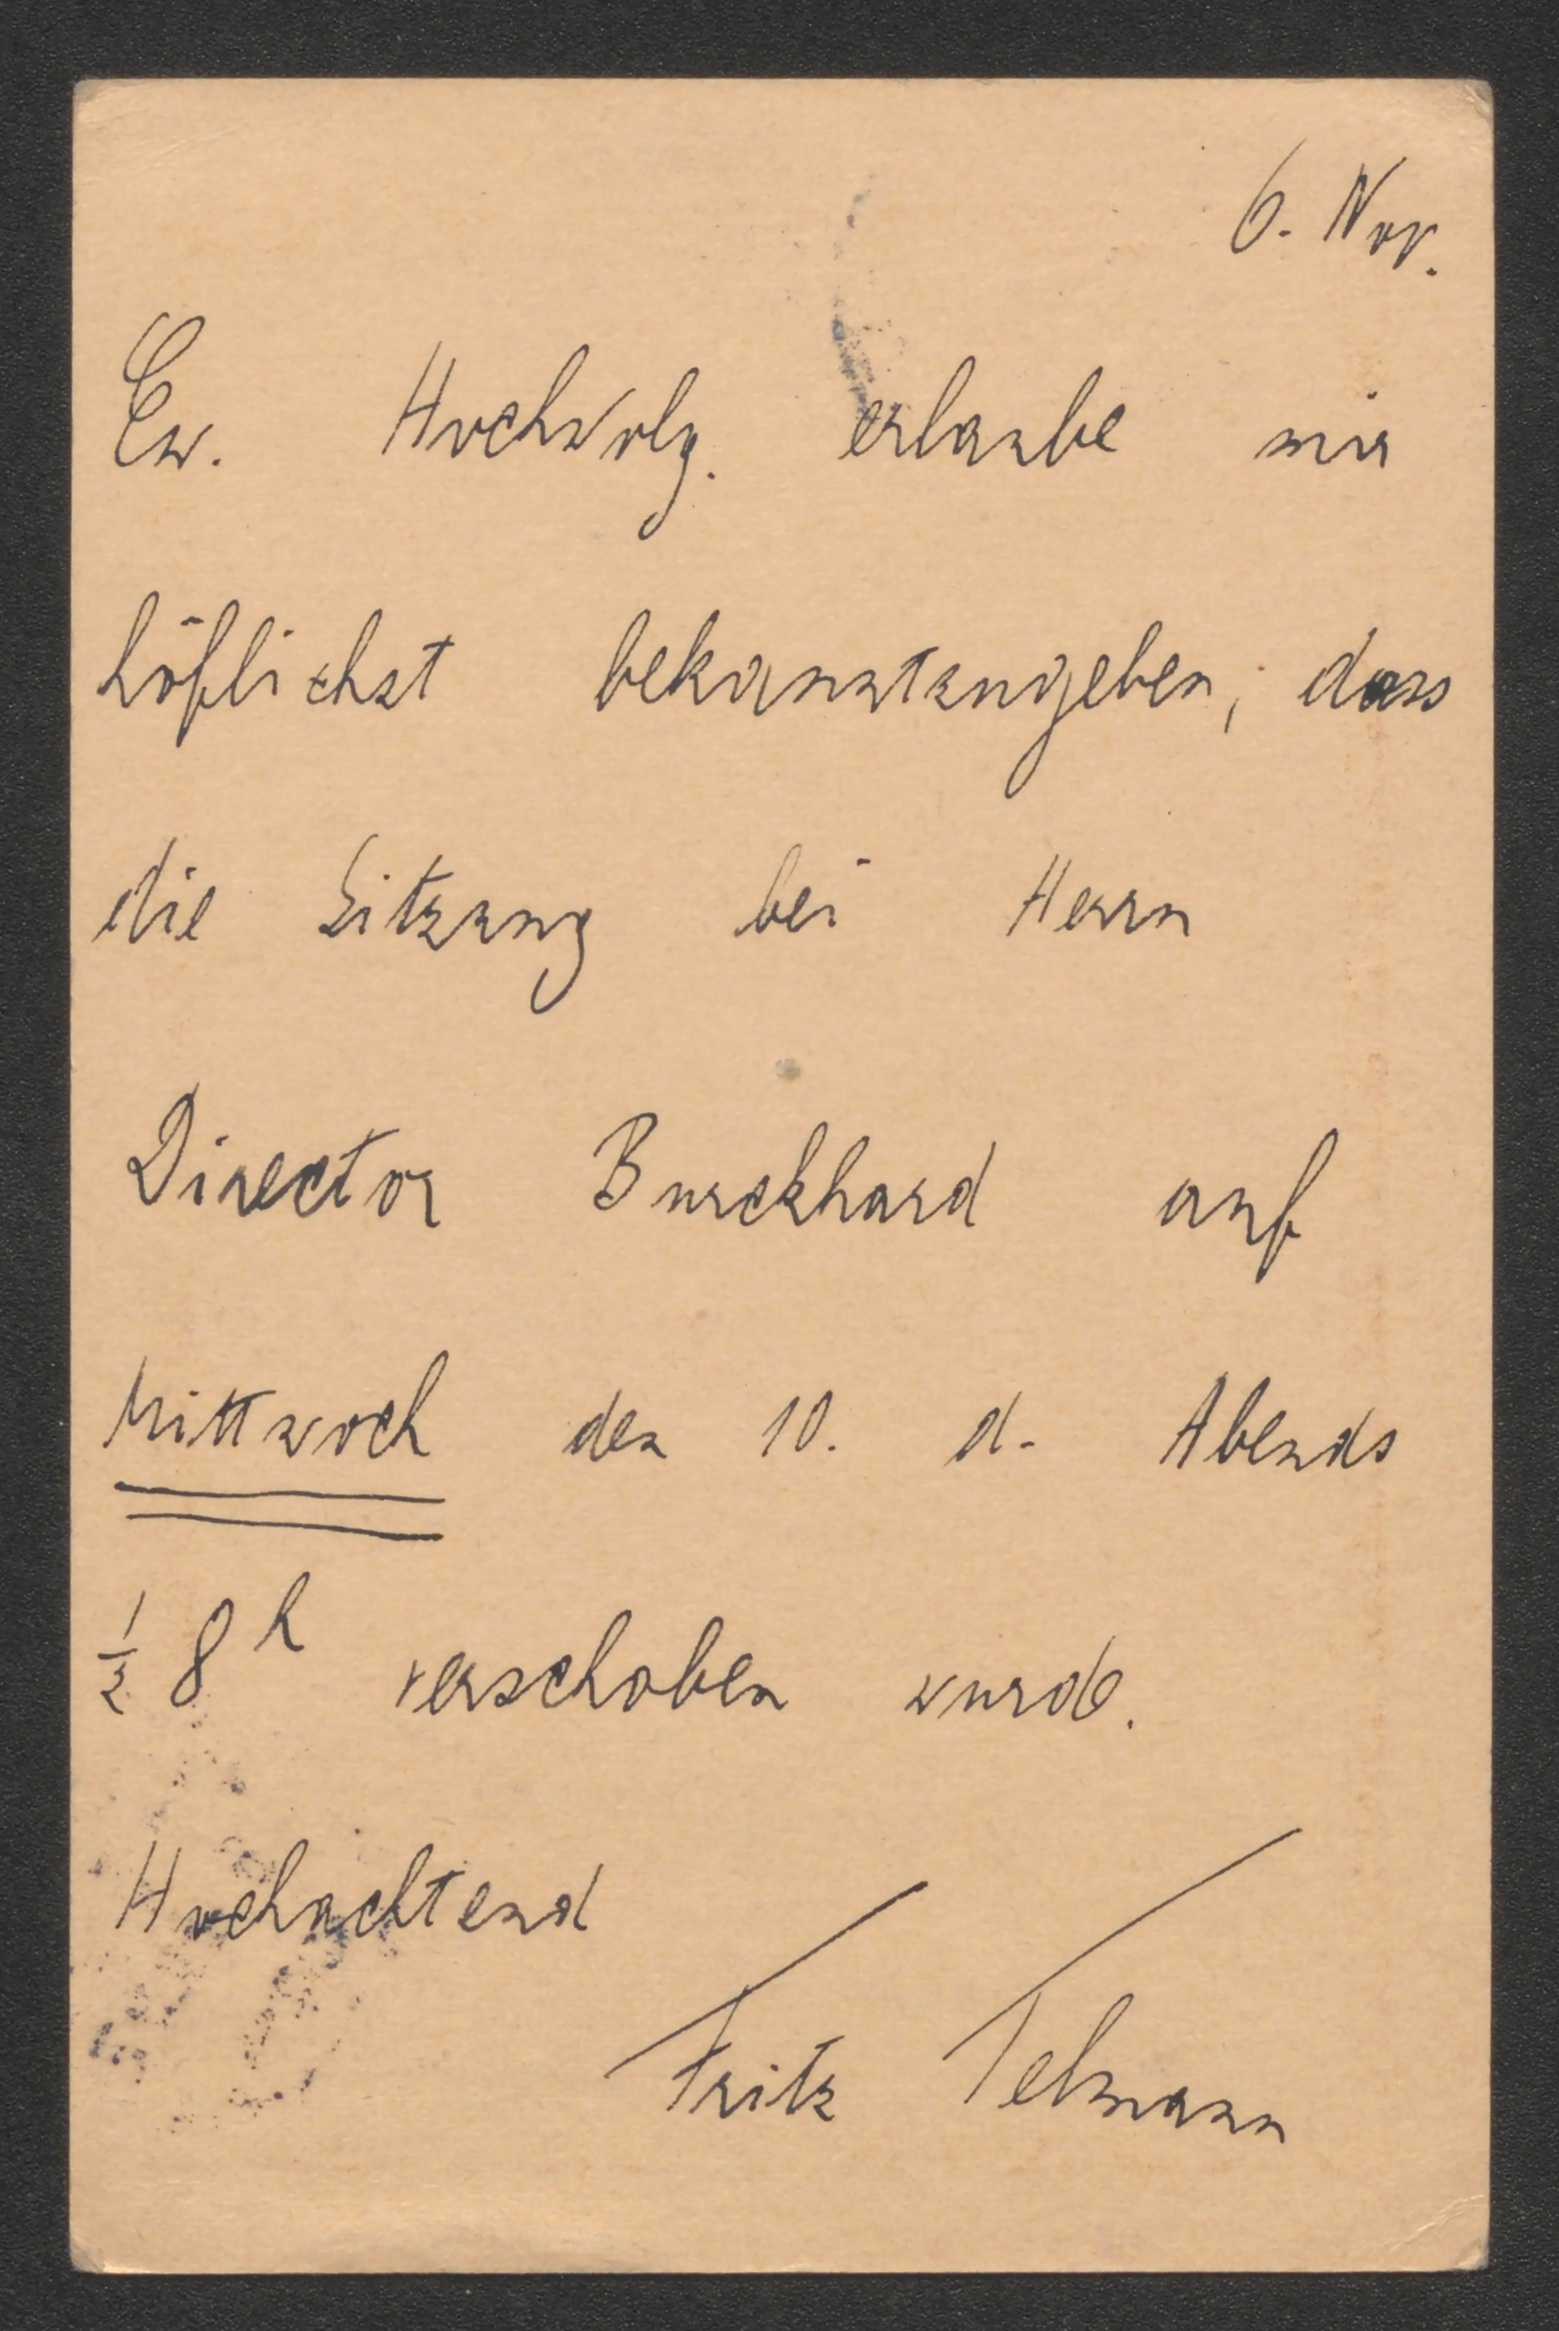 6. Nov.
Ew. Hochwolg. erlaube mir
höflichst bekanntzugeben, dass
die Sitzung bei Herrn
Director Burckhard auf
Mittwoch den 10. d. Abends
½ 8h verschoben wurde.
Hochachtend
Fritz Telmann